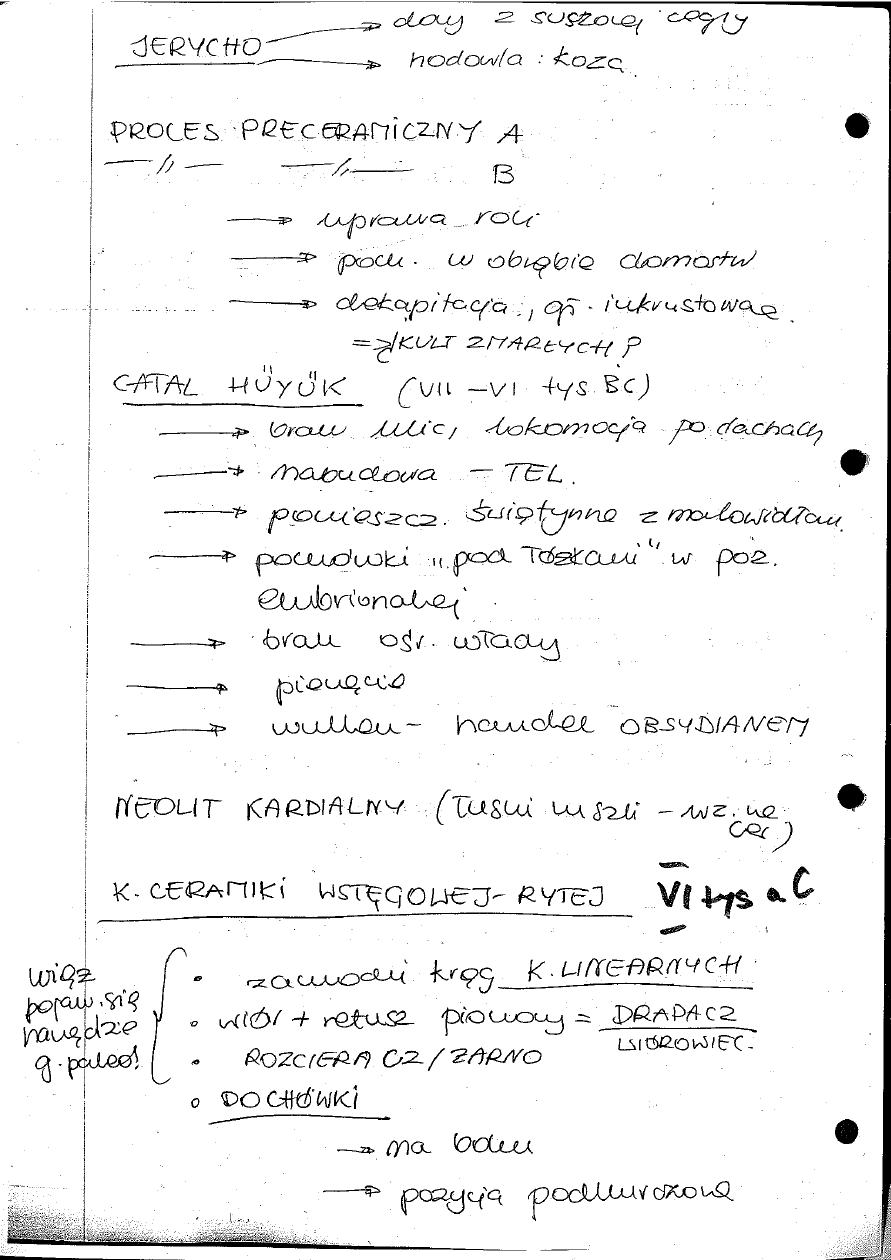 JERYCHO → domy z suszonej cegły
→ hodowla : koza
PROCES PRECERAMICZNY A
—//— —//— B
→ uprawa roli
→ poch. w obrębie domostw
→ dekapitacja, gł. inkrustowane
=> KULT ZMARŁYCH?
CATAL HÜYÜK (VII – VI tys. BC)
→ brak ulic, lokomocja po dachach
→ nabudowa – TEL.
→ pomieszcz. świętynne z malowidłam.
→ pochówki "pod łóżkami" w poz.
embrionalnej
→ brak ośr. władzy
→ pieczęcie
→ wulkan – handel OBSYDIANEM
NEOLIT KARDIALNY (Tuski muszli – wz. na
cer)
K. CERAMIKI WSTĘGOWEJ-RYTEJ VI tys a C
• zachodni krąg K. LINEARNYCH
więz
pojaw. się
narzędzie
g. paleo!
• wiór + retusz pionowy = DRAPACZ
WIÓROWIEC.
• ROZCIERACZ / ŻARNO
• POCHÓWKI
→ na boku
→ pozycja podkurczona